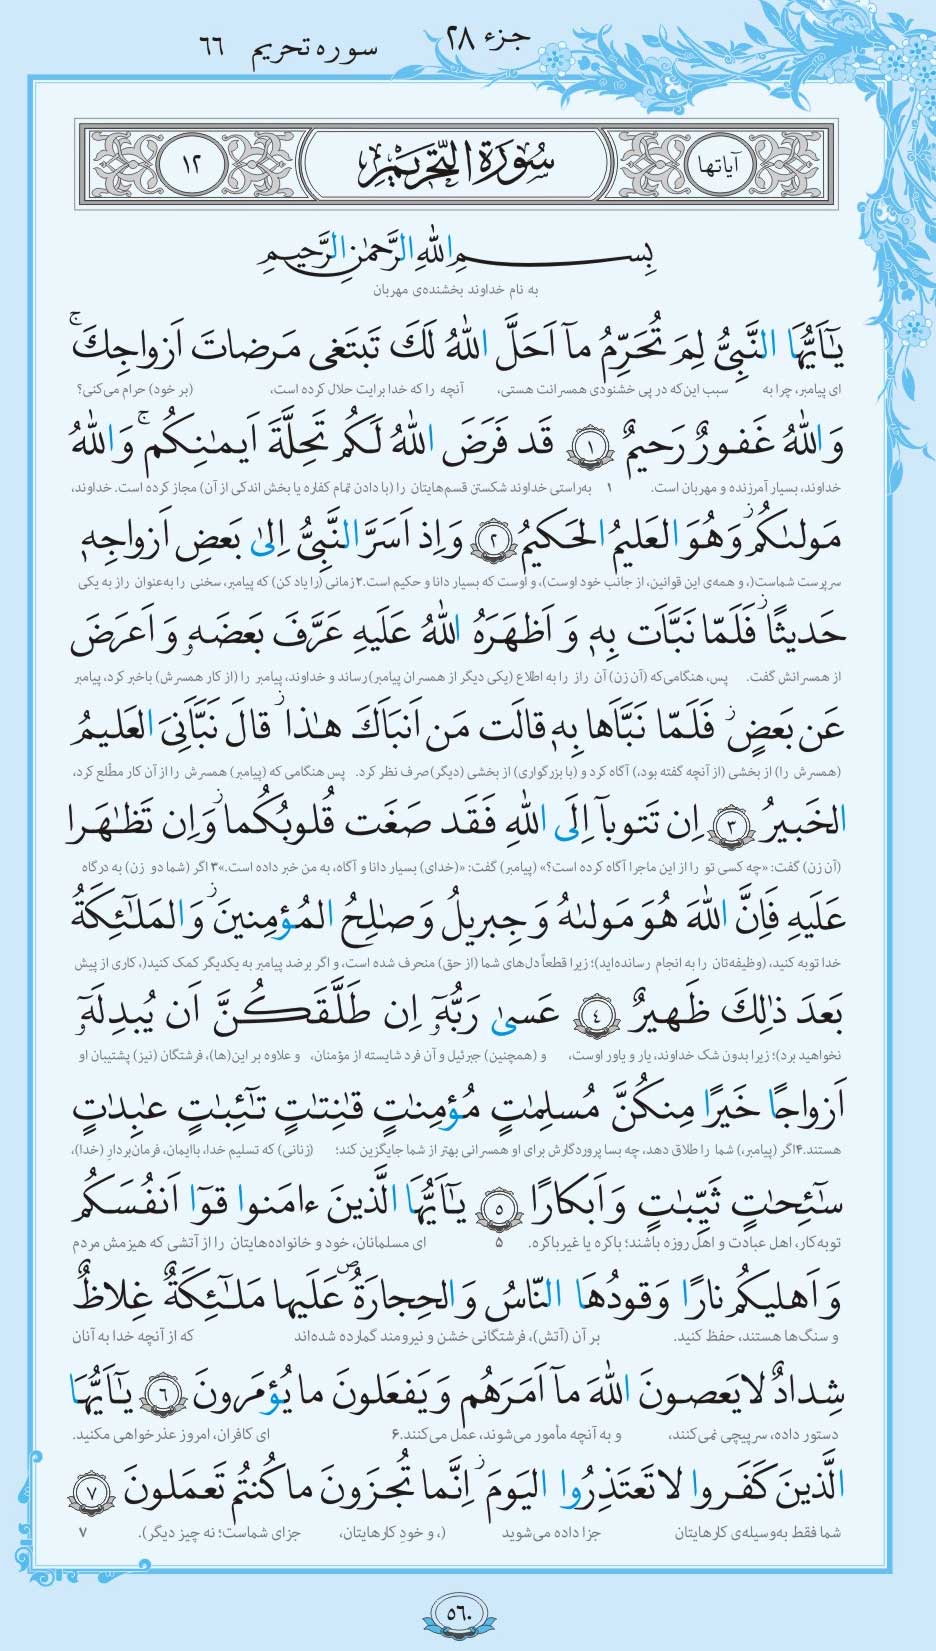 جزء ۲۸
سوره تحریم ۶۶
آیاتها
سُورَةُ التَّحْرِيْمِ
۱۲
بِسمِ اللهِ الرَّحمٰنِ الرَّحیمِ
به نام خداوند بخشنده‌ی مهربان
یٰۤاَیُّهَا النَّبِیُّ لِمَ تُحَرِّمُ ماۤ اَحَلَّ اللهُ لَكَ تَبتَغی مَرضاتَ اَزواجِكَ ۚ
ای پیامبر، چرا به سبب این‌که در پی خشنودی همسرانت هستی، آنچه را که خدا برایت حلال کرده است، (بر خود) حرام می‌کنی؟
وَاللهُ غَفورٌ رَحیمٌ ۱ قَد فَرَضَ اللهُ لَكُم تَحِلَّةَ اَیمٰنِكُم ۚ وَاللهُ
خداوند، بسیار آمرزنده و مهربان است. ۱ به‌راستی خداوند شکستن قسم‌هایتان را (با دادن تمام کفاره یا بخش اندکی از آن) مجاز کرده است. خداوند،
مَولىٰكُم ۖ وَهُوَ العَلیمُ الحَكیمُ ۲ وَاِذ اَسَرَّ النَّبِیُّ اِلىٰ بَعضِ اَزواجِهٖ
سرپرست شماست(، و همه‌ی این قوانین، از جانب خود اوست)، و اوست که بسیار دانا و حکیم است.۲ زمانی (را یاد کن) که پیامبر، سخنی را به‌عنوان راز به یکی
حَدیثًا فَلَمّا نَبَّاَت بِهٖ وَ اَظهَرَهُ اللهُ عَلَیهِ عَرَّفَ بَعضَهٗ وَ اَعرَضَ
از همسرانش گفت. پس، هنگامی‌که (آن زن) آن راز را به اطلاع (یکی دیگر از همسران پیامبر) رساند و خداوند، پیامبر را (از کار همسرش) باخبر کرد، پیامبر
عَن بَعضٍ فَلَمّا نَبَّاَها بِهٖ قالَت مَن اَنبَاَكَ هٰذا قالَ نَبَّاَنِیَ العَلیمُ
(همسرش را) از بخشی (از آنچه گفته بود،) آگاه کرد و (با بزرگواری) از بخشی (دیگر) صرف نظر کرد. پس هنگامی که (پیامبر) همسرش را از آن کار مطّلع کرد،
الخَبیرُ ۳ اِن تَتوباۤ اِلَى اللهِ فَقَد صَغَت قُلوبُكُما وَاِن تَظٰهَرا
(آن زن) گفت: «چه کسی تو را از این ماجرا آگاه کرده است؟» (پیامبر) گفت: «(خدای) بسیار دانا و آگاه، به من خبر داده است.»۳ اگر (شما دو زن) به درگاه
عَلَیهِ فَاِنَّ اللهَ هُوَ مَولىٰهُ وَ جِبریلُ وَ صٰلِحُ المُؤمِنینَ وَالمَلٰۤئِكَةُ
خدا توبه کنید، (وظیفه‌تان را به انجام رسانده‌اید)؛ زیرا قطعاً دل‌های شما (از حق) منحرف شده است، و اگر برضد پیامبر به یکدیگر کمک کنید(، کاری از پیش
بَعدَ ذٰلِكَ ظَهیرٌ ۴ عَسىٰ رَبُّهٗۤ اِن طَلَّقَكُنَّ اَن یُبدِلَهٗۤ
نخواهید برد)؛ زیرا بدون شک خداوند، یار و یاور اوست، و (همچنین) جبرئیل و آن فرد شایسته از مؤمنان، و علاوه بر این(ها)، فرشتگان (نیز) پشتیبان او
اَزواجًا خَیرًا مِنكُنَّ مُسلِمٰتٍ مُؤمِنٰتٍ قٰنِتٰتٍ تٰۤئِبٰتٍ عٰبِدٰتٍ
هستند.۴ اگر (پیامبر،) شما را طلاق دهد، چه بسا پروردگارش برای او همسرانی بهتر از شما جایگزین کند؛ (زنانی) که تسلیم خدا، باایمان، فرمان‌بردارِ (خدا)،
سٰۤئِحٰتٍ ثَیِّبٰتٍ وَ اَبكارًا ۵ یٰۤاَیُّهَا الَّذینَ ءامَنوا قوۤا اَنفُسَكُم
توبه‌کار، اهل عبادت و اهل روزه باشند؛ باکره یا غیرباکره. ۵ ای مسلمانان، خود و خانواده‌هایتان را از آتشی که هیزمش مردم
وَ اَهلیكُم نارًا وَقودُهَا النّاسُ وَالحِجارَةُ عَلَیها مَلٰۤئِكَةٌ غِلاظٌ
و سنگ‌ها هستند، حفظ کنید. بر آن (آتش)، فرشتگانی خشن و نیرومند گمارده شده‌اند که از آنچه خدا به آنان
شِدادٌ لا یَعصونَ اللهَ ماۤ اَمَرَهُم وَ یَفعَلونَ ما یُؤمَرونَ ۶ یٰۤاَیُّهَا
دستور داده، سرپیچی نمی‌کنند، و به آنچه مأمور می‌شوند، عمل می‌کنند.۶ ای کافران، امروز عذرخواهی مکنید.
الَّذینَ كَفَروا لا تَعتَذِرُوا الیَومَ اِنَّما تُجزَونَ ما كُنتُم تَعمَلونَ ۷
شما فقط به‌وسیله‌ی کارهایتان جزا داده می‌شوید (، و خودِ کارهایتان، جزای شماست؛ نه چیز دیگر). ۷
۵۶۰